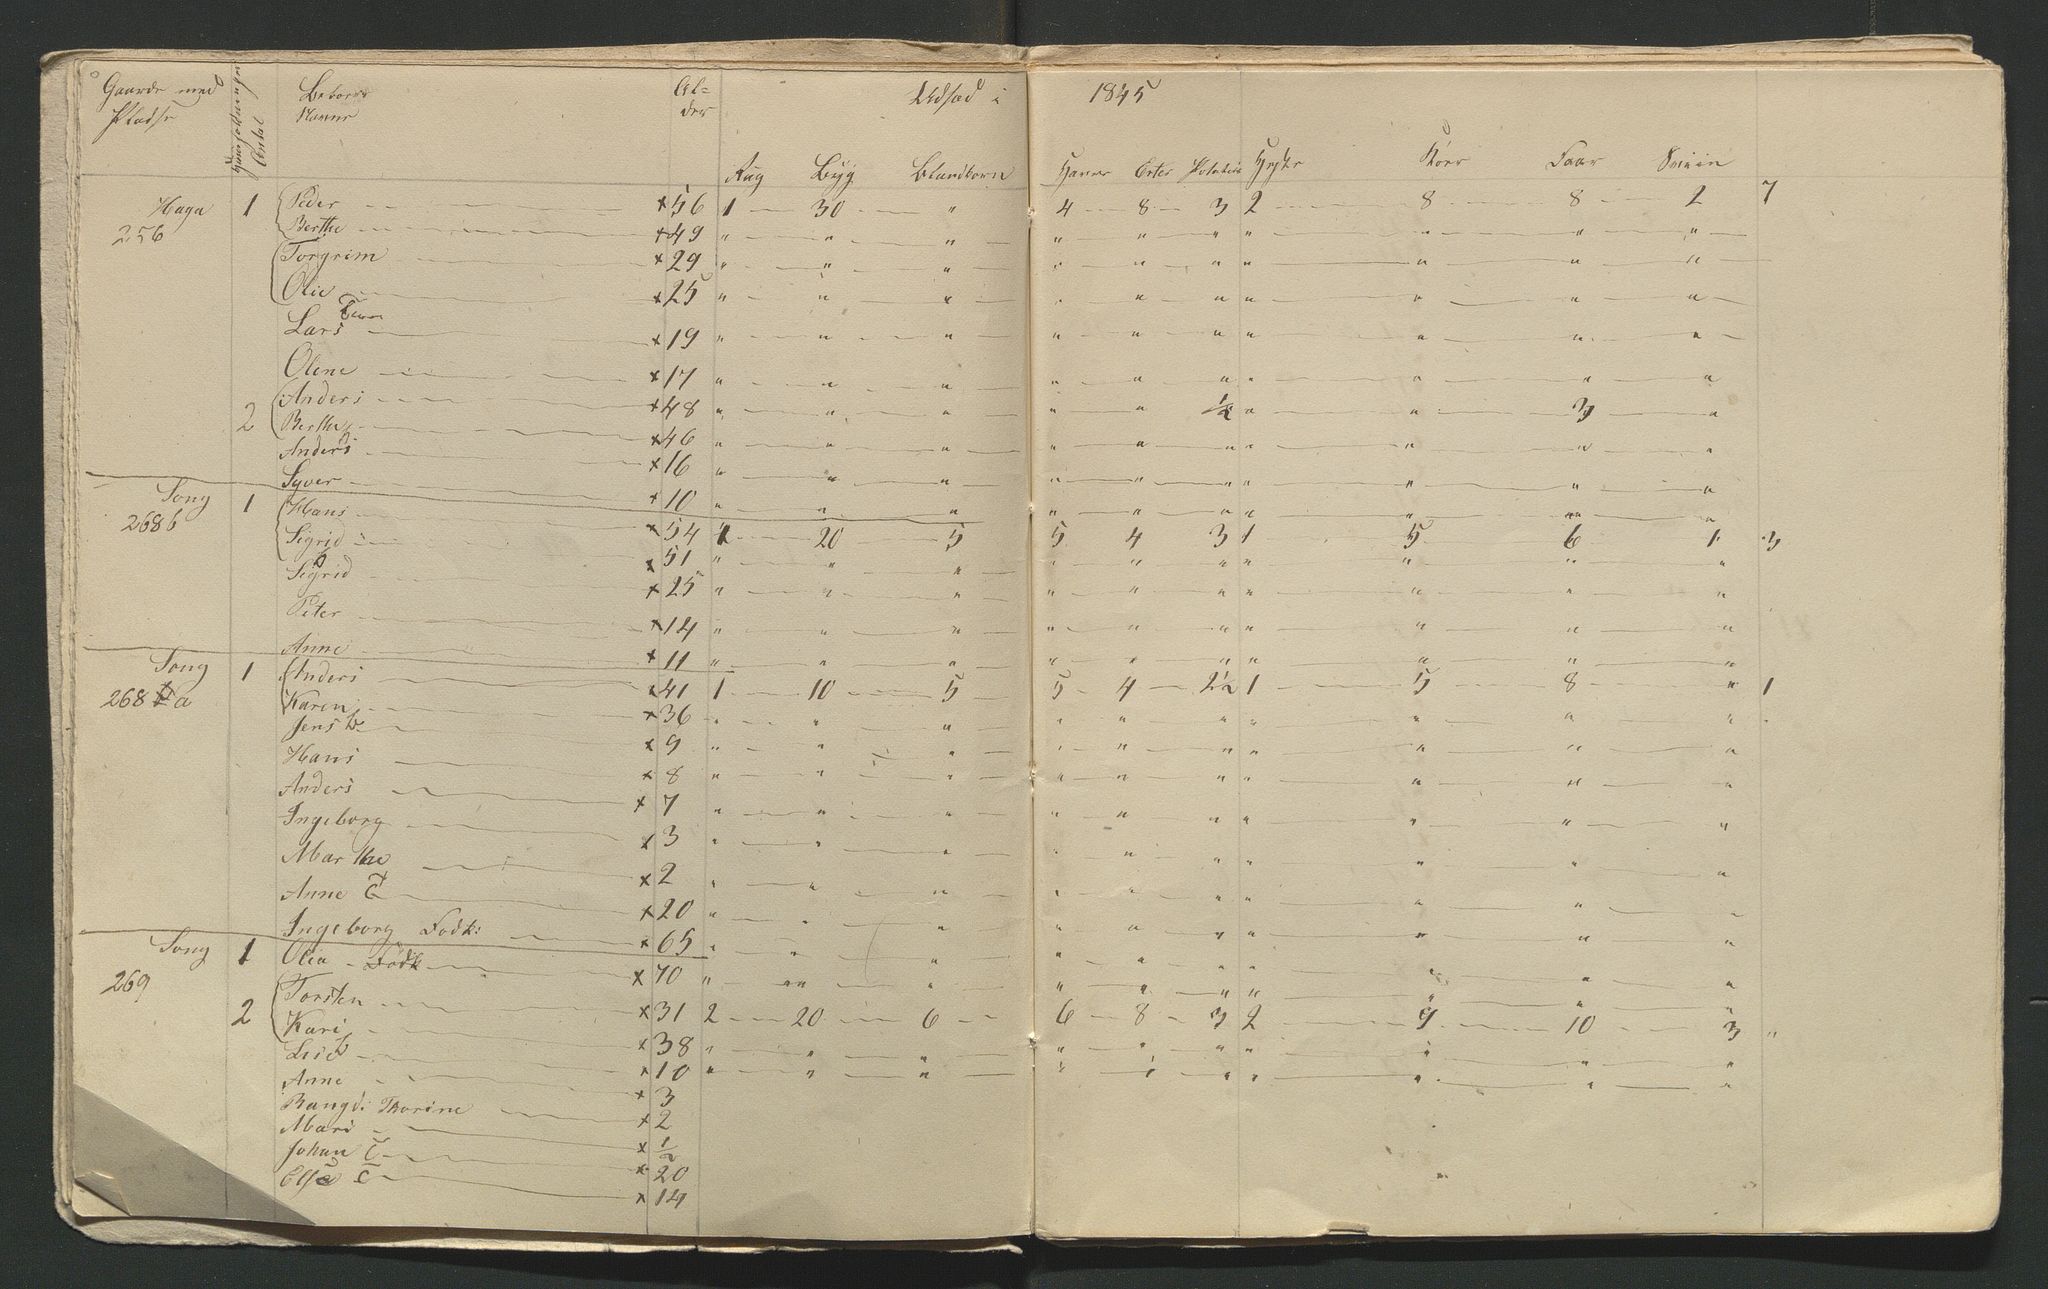 Gaarde med
Pladse
Antal
Beboernes
Navne
Al=
der
Udsæd i 1845
Rug Byg Blandkorn Havre Erter Poteter Heste Kiøer Faar Sviin
Haga 1 Peder × 56 1 30 " 4 8 3 2 8 8 2 7
256 Berthe × 49 " " " " " " " " " "
Torgrim × 29 " " " " " " " " " "
Olia × 25 " " " " " " " " " "
Lars × 19 " " " " " " " " " "
Oline × 17 " " " " " " " " " "
2 Anders × 48 " " " " " ½ " " 3 "
Berthe × 46 " " " " " " " " " "
Anders × 16 " " " " " " " " " "
Syver × 10 " " " " " " " " " "
Song 1 Hans × 54 1 20 5 5 4 3 1 5 6 1 3
268 b Sigrid × 51 " " " " " " " " " "
Sigrid × 25 " " " " " " " " " "
Peter × 14 " " " " " " " " " "
Anne × 11 " " " " " " " " " "
Song 1 Anders × 41 1 10 5 5 4 2½ 1 5 8 " 1
268 a Karen × 36 " " " " " " " " " "
Jens × 9 " " " " " " " " " "
Hans × 8 " " " " " " " " " "
Anders × 7 " " " " " " " " " "
Ingeborg × 3 " " " " " " " " " "
Marthe × 2 " " " " " " " " " "
Anne T × 20 " " " " " " " " " "
Ingeborg Fodk: × 65 " " " " " " " " " "
Song 1 Olea Födk × 70 " " " " " " " " " "
269 2 Torsten × 31 2 20 6 6 8 3 2 9 10 3 "
Kari × 38 " " " " " " " " " "
Lisb × 10 " " " " " " " " " "
Anne × 3
Rangdi Thorine × 2
Mari × ½
Johan T × 20
Else T × 14